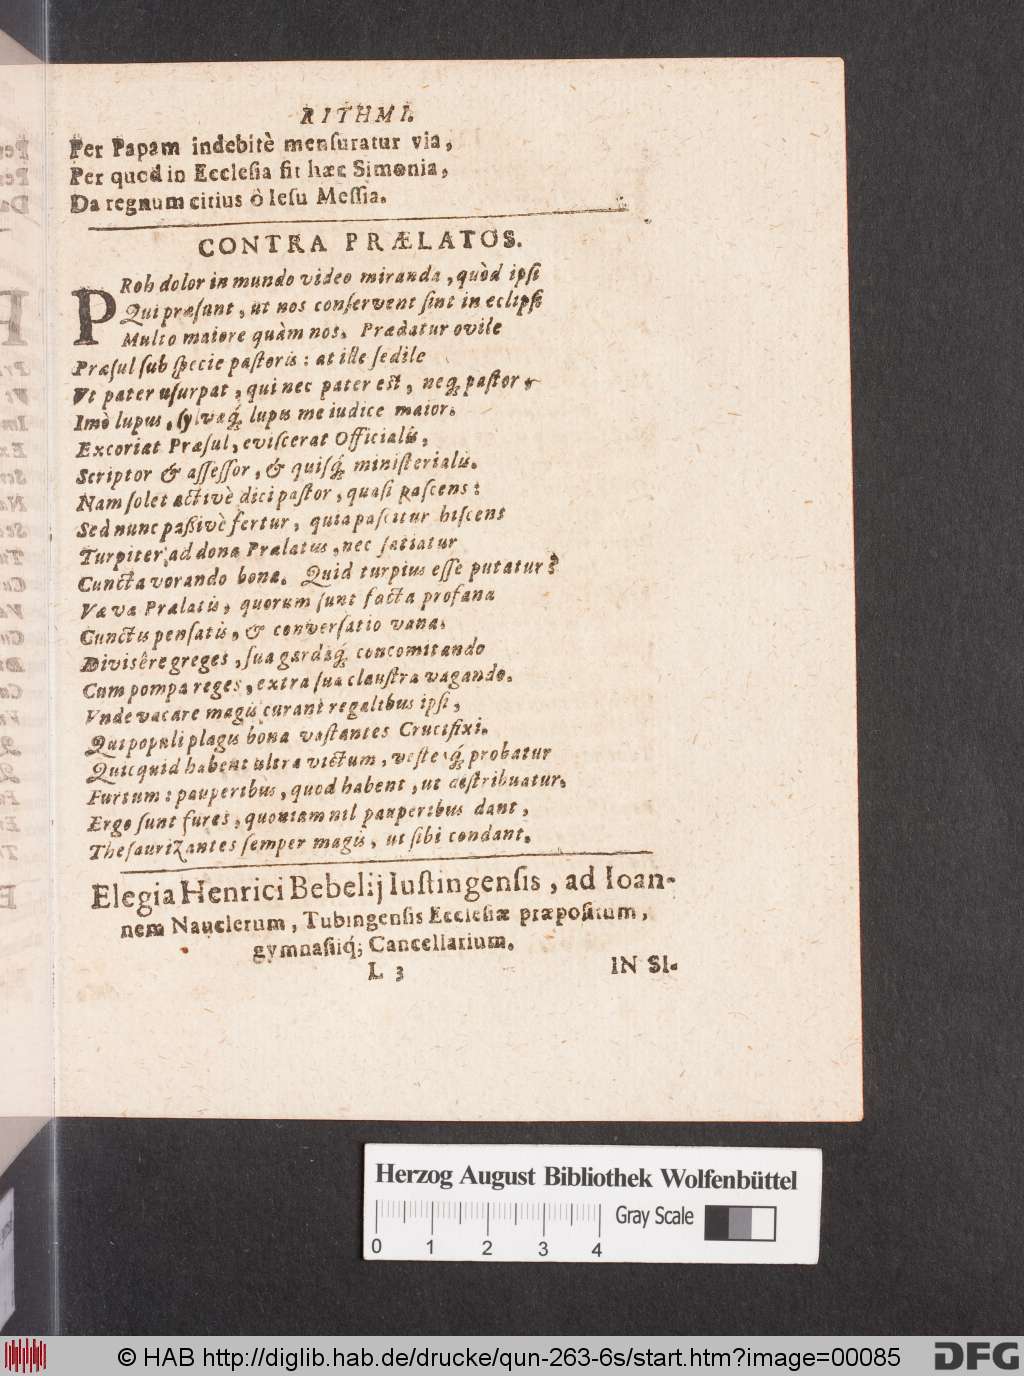 RITHMI.
Per Papam indebitè menſuratur via,
Per quod in Eccleſia fit hæc Simonia,
Da regnum citius ô Ieſu Meſſia.
CONTRA PRÆLATOS.
PRoh dolor in mundo video miranda, quòd ipſi
Qui præſunt, ut nos conſervent ſint in eclipſi
Multo maiore quàm nos. Prædatur ovile
Præſul ſub ſpecie paſtoris: at ille ſedile
Vt pater uſurpat, qui nec pater eſt, neq́; paſtor
Imò lupus, ſylvæq́; lupus me iudice maior.
Excoriat Præſul, eviſcerat Officialis,
Scriptor & aſſeſſor, & quiſq́; miniſterialis.
Nam ſolet activè dici paſtor, quaſi paſcens:
Sed nunc paßivè fertur, quia paſcitur hiſcens
Turpiter ad dona Prælatus, nec ſatiatur
Cuncta vorando bona. Quid turpius eſſe putatur?
Væ væ Prælatis, quorum ſunt facta profana
Cunctis penſatis, & converſatio vana.
Diviſêre greges, ſua gardaq́; concomitando
Cum pompa reges, extra ſua clauſtra vagando.
Vnde vacare magis curant regalibus ipſi,
Qui populi plagis bona vaſtantes Crucifixi.
Quicquid habent ultra victum, veſteq́; probatur
Furtum: pauperibus, quod habent, ut deſtribuatur.
Ergo ſunt fures, quoniam nil pauperibus dant,
Theſaurizantes ſemper magis, ut ſibi condant.
Elegia Henrici Bebelij Iuſtingenſis, ad Ioan-
nem Nauclerum, Tubingenſis Eccleſiæ præpoſitum,
gymnaſiiq́; Cancellarium.
L 3 IN SI-
Herzog August Bibliothek Wolfenbüttel
Gray Scale
0 1 2 3 4
© HAB http://diglib.hab.de/drucke/qun-263-6s/start.htm?image=00085 DFG